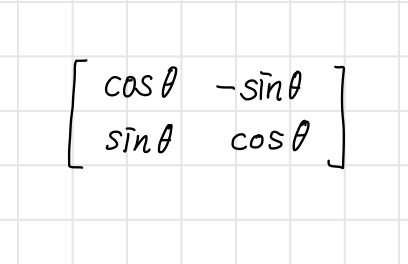 [ cos θ  -sin θ
sin θ  cos θ ]